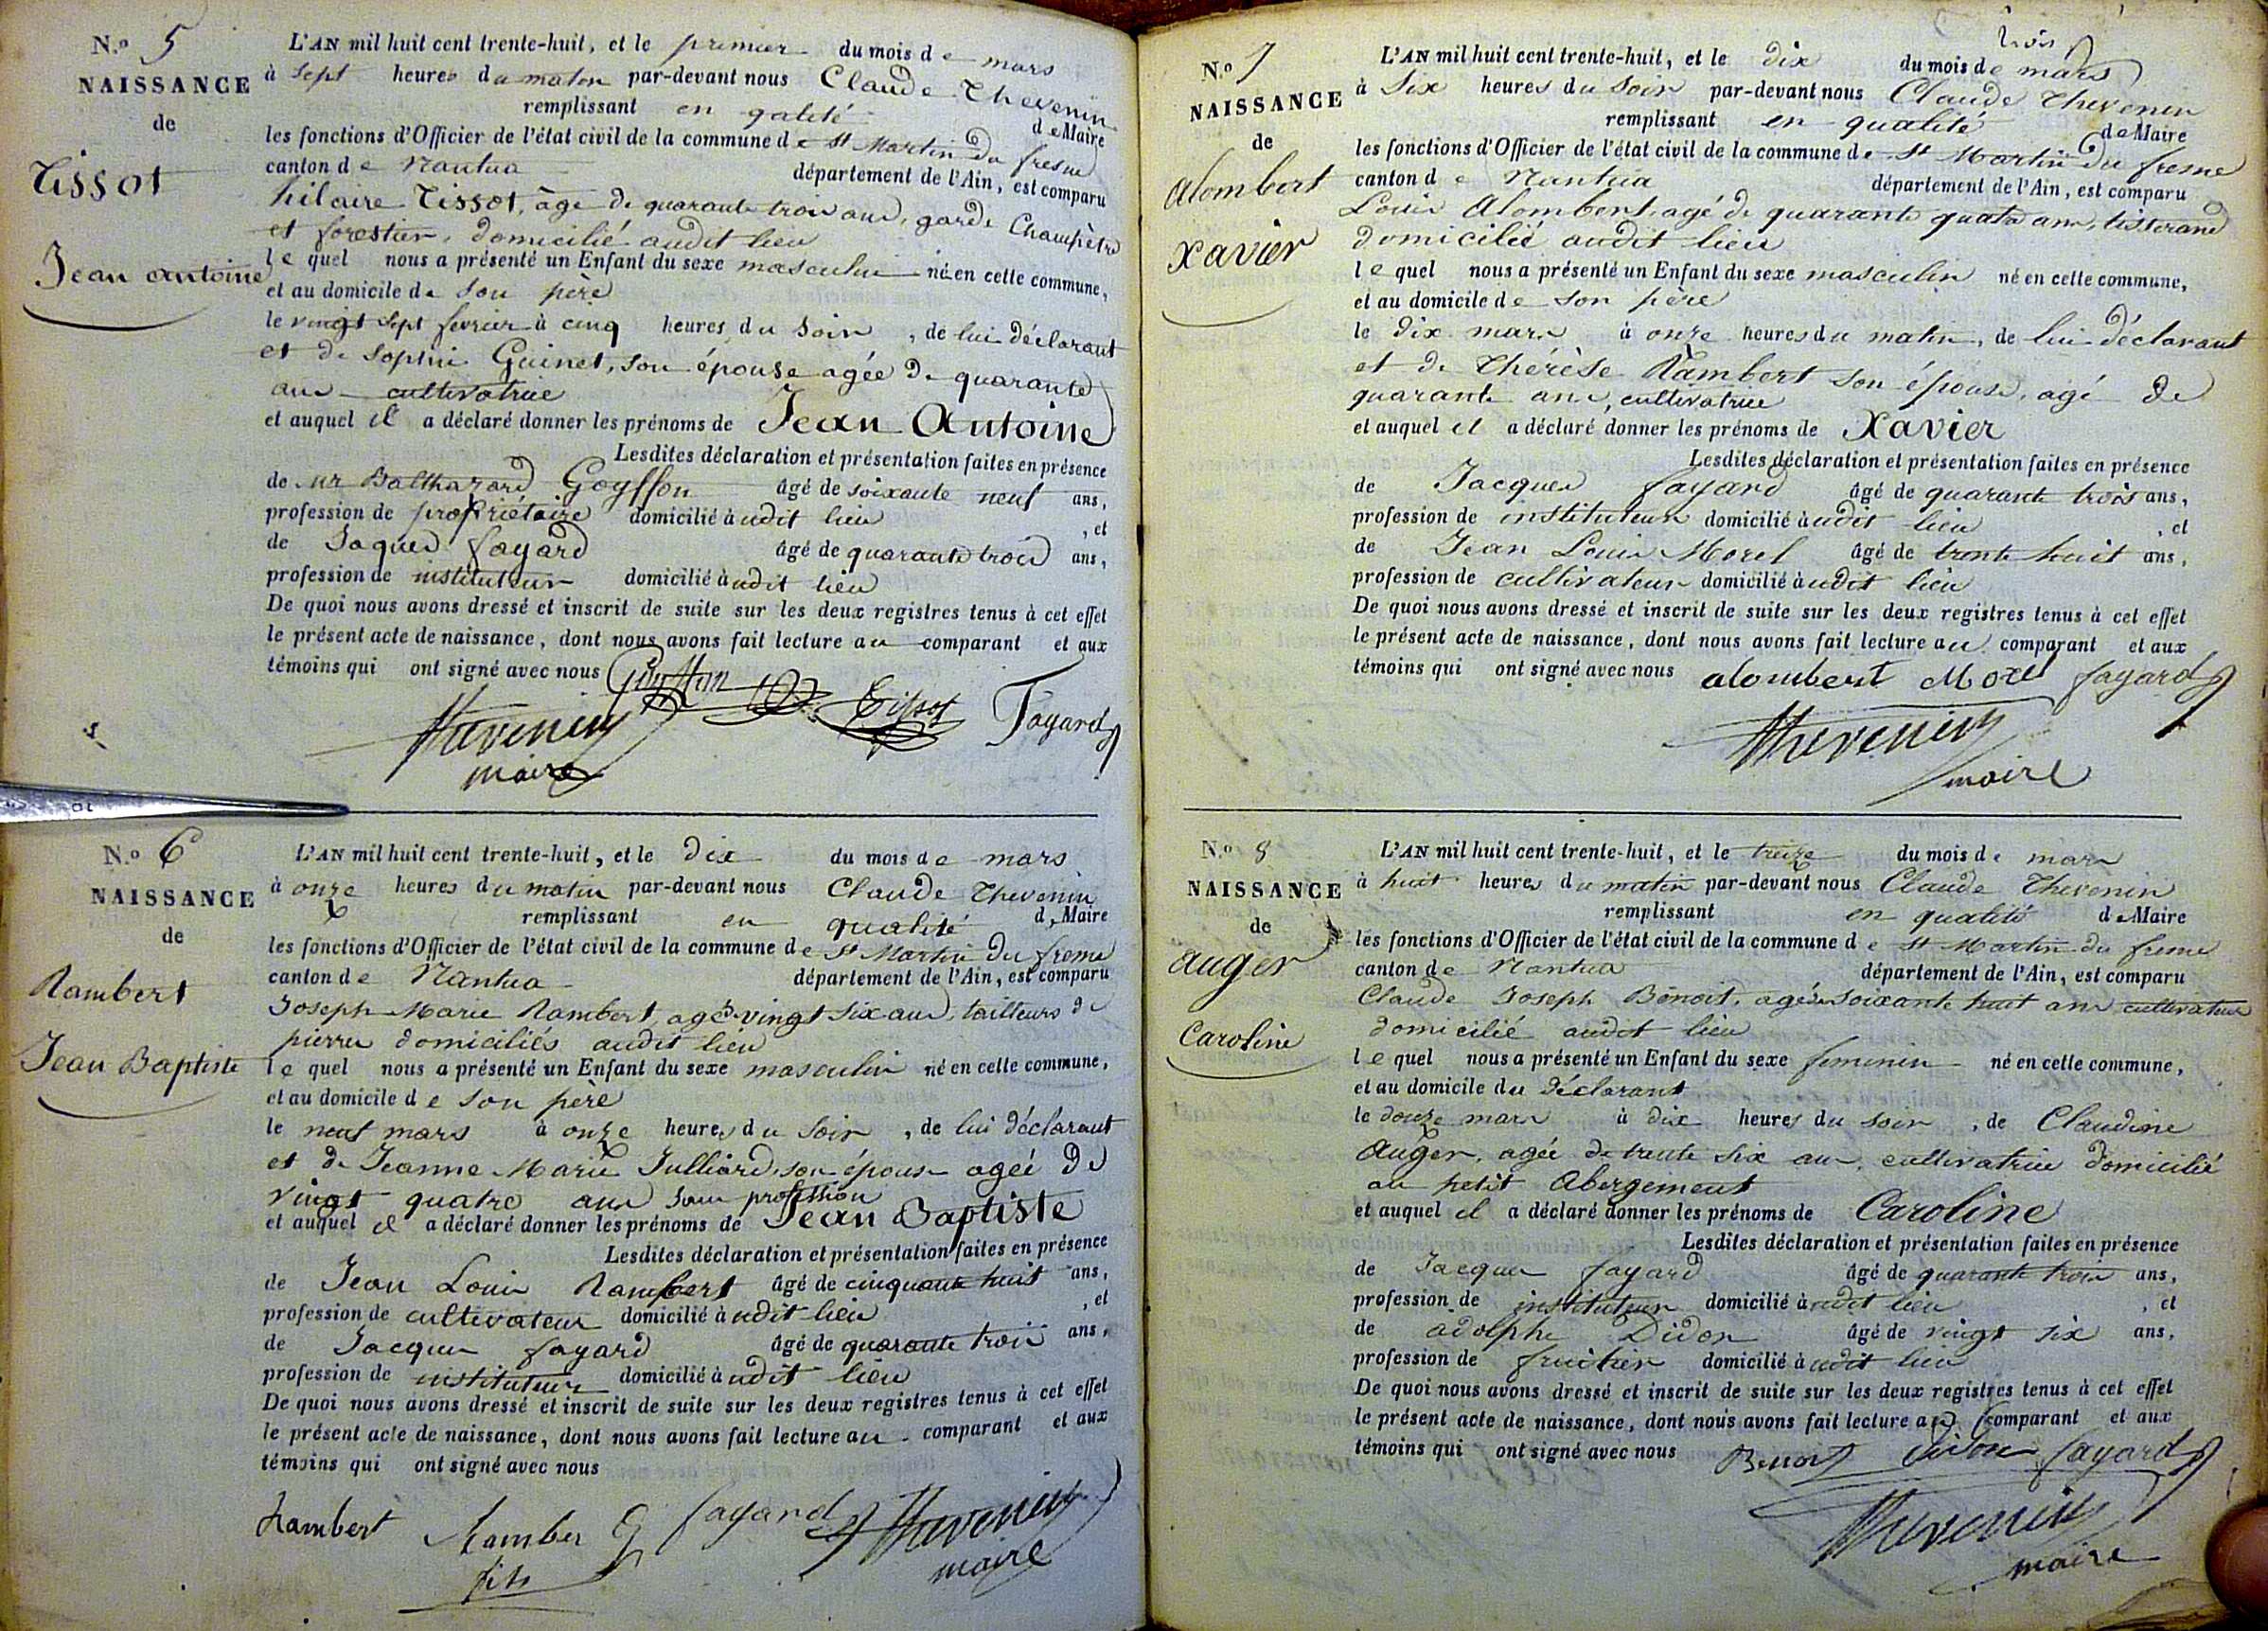 N.º 5
NAISSANCE
de
Tissot
Jean Antoine
L'AN mil huit cent trente-huit, et le premier du mois de mars
à sept heures du matin par-devant nous Claude Thevenin
remplissant en qalité de Maire
les fonctions d'Officier de l'état civil de la commune de St Martin du fresne
canton de Nantua département de l'Ain, est comparu
hilaire Tissot, âge de quarante trois ans, garde Champêtre
et forestier, domicilié audit lieu
le quel nous a présenté un Enfant du sexe masculin né en cette commune,
et au domicile de son père
le vingt sept fevrier à cinq heures du soir, de lui déclarant
et de Sophie Guinet, son épouse agée de quarante
ans cultivatrice
et auquel il a déclaré donner les prénoms de Jean Antoine
Lesdites déclaration et présentation faites en présence
de Mr Balthazard Goyffon âgé de soixante neuf ans,
profession de propriétaire domicilié audit lieu, et
de Jaques fayard âgé de quarante trois ans,
profession de instituteur domicilié audit lieu
De quoi nous avons dressé et inscrit de suite sur les deux registres tenus à cet effet
le présent acte de naissance, dont nous avons fait lecture au comparant et aux
témoins qui ont signé avec nous Goyffon
Thevenin Tissot Fayard
maire
N.º 6
NAISSANCE
de
Rambert
Jean Baptiste
L'AN mil huit cent trente-huit, et le dix du mois de mars
à onze heures du matin par-devant nous Claude Thevenin
remplissant en qualité de Maire
les fonctions d'Officier de l'état civil de la commune de St Martin du fresne
canton de Nantua département de l'Ain, est comparu
Joseph Marie Rambert agé vingt six ans, tailleurs de
pierre domiciliés audit lieu
le quel nous a présenté un Enfant du sexe masculin né en cette commune,
et au domicile de son père
le neuf mars à onze heures du soir, de lui déclarant
et de Jeanne Marie Julliard, son épouse agée de
vingt quatre ans sans profession
et auquel il a déclaré donner les prénoms de Jean Baptiste
Lesdites déclaration et présentation faites en présence
de Jean Louis Rambert âgé de cinquante huit ans,
profession de cultivateur domicilié audit lieu, et
de Jacques fayard âgé de quarante trois ans,
profession de instituteur domicilié audit lieu
De quoi nous avons dressé et inscrit de suite sur les deux registres tenus à cet effet
le présent acte de naissance, dont nous avons fait lecture au comparant et aux
témoins qui ont signé avec nous
Rambert Ramber fayard Thevenin
fils maire
N.º 7
NAISSANCE
de
Alombert
Xavier
trois
L'AN mil huit cent trente-huit, et le dix du mois de mars
à six heures du soir par-devant nous Claude Thevenin
remplissant en qualité de Maire
les fonctions d'Officier de l'état civil de la commune de St Martin du fresne
canton de Nantua département de l'Ain, est comparu
Louis Alombert, agé de quarante quatre ans, tisserand
domicilié audit lieu
le quel nous a présenté un Enfant du sexe masculin né en cette commune,
et au domicile de son père
le dix mars à onze heures du matin, de lui déclarant
et de Thérèse Rambert son épouse, agé de
quarante ans, cultivatrice
et auquel il a déclaré donner les prénoms de Xavier
Lesdites déclaration et présentation faites en présence
de Jacques fayard âgé de quarante trois ans,
profession de instituteur domicilié audit lieu, et
de Jean Louis Morel âgé de trente huit ans,
profession de cultivateur domicilié audit lieu
De quoi nous avons dressé et inscrit de suite sur les deux registres tenus à cet effet
le présent acte de naissance, dont nous avons fait lecture au comparant et aux
témoins qui ont signé avec nous alombert Morel fayard
Thevenin
maire
N.º 8
NAISSANCE
de
Auger
Caroline
L'AN mil huit cent trente-huit, et le treize du mois de mars
à huit heures du matin par-devant nous Claude Thevenin
remplissant en qualité de Maire
les fonctions d'Officier de l'état civil de la commune de St Martin du fresne
canton de Nantua département de l'Ain, est comparu
Claude Joseph Benoit, agé de soixante huit ans cultivateur
domicilié audit lieu
le quel nous a présenté un Enfant du sexe feminin né en cette commune,
et au domicile du déclarant
le douze mars à dix heures du soir, de Claudine
Auger, agée de trente six ans, cultivatrice domicilié
au petit Abergement
et auquel il a déclaré donner les prénoms de Caroline
Lesdites déclaration et présentation faites en présence
de Jacques fayard âgé de quarante trois ans,
profession de instituteur domicilié audit lieu, et
de adolphe Didon âgé de vingt six ans,
profession de fruitier domicilié audit lieu
De quoi nous avons dressé et inscrit de suite sur les deux registres tenus à cet effet
le présent acte de naissance, dont nous avons fait lecture au comparant et aux
témoins qui ont signé avec nous Benoit Didon fayard
Thevenin
maire